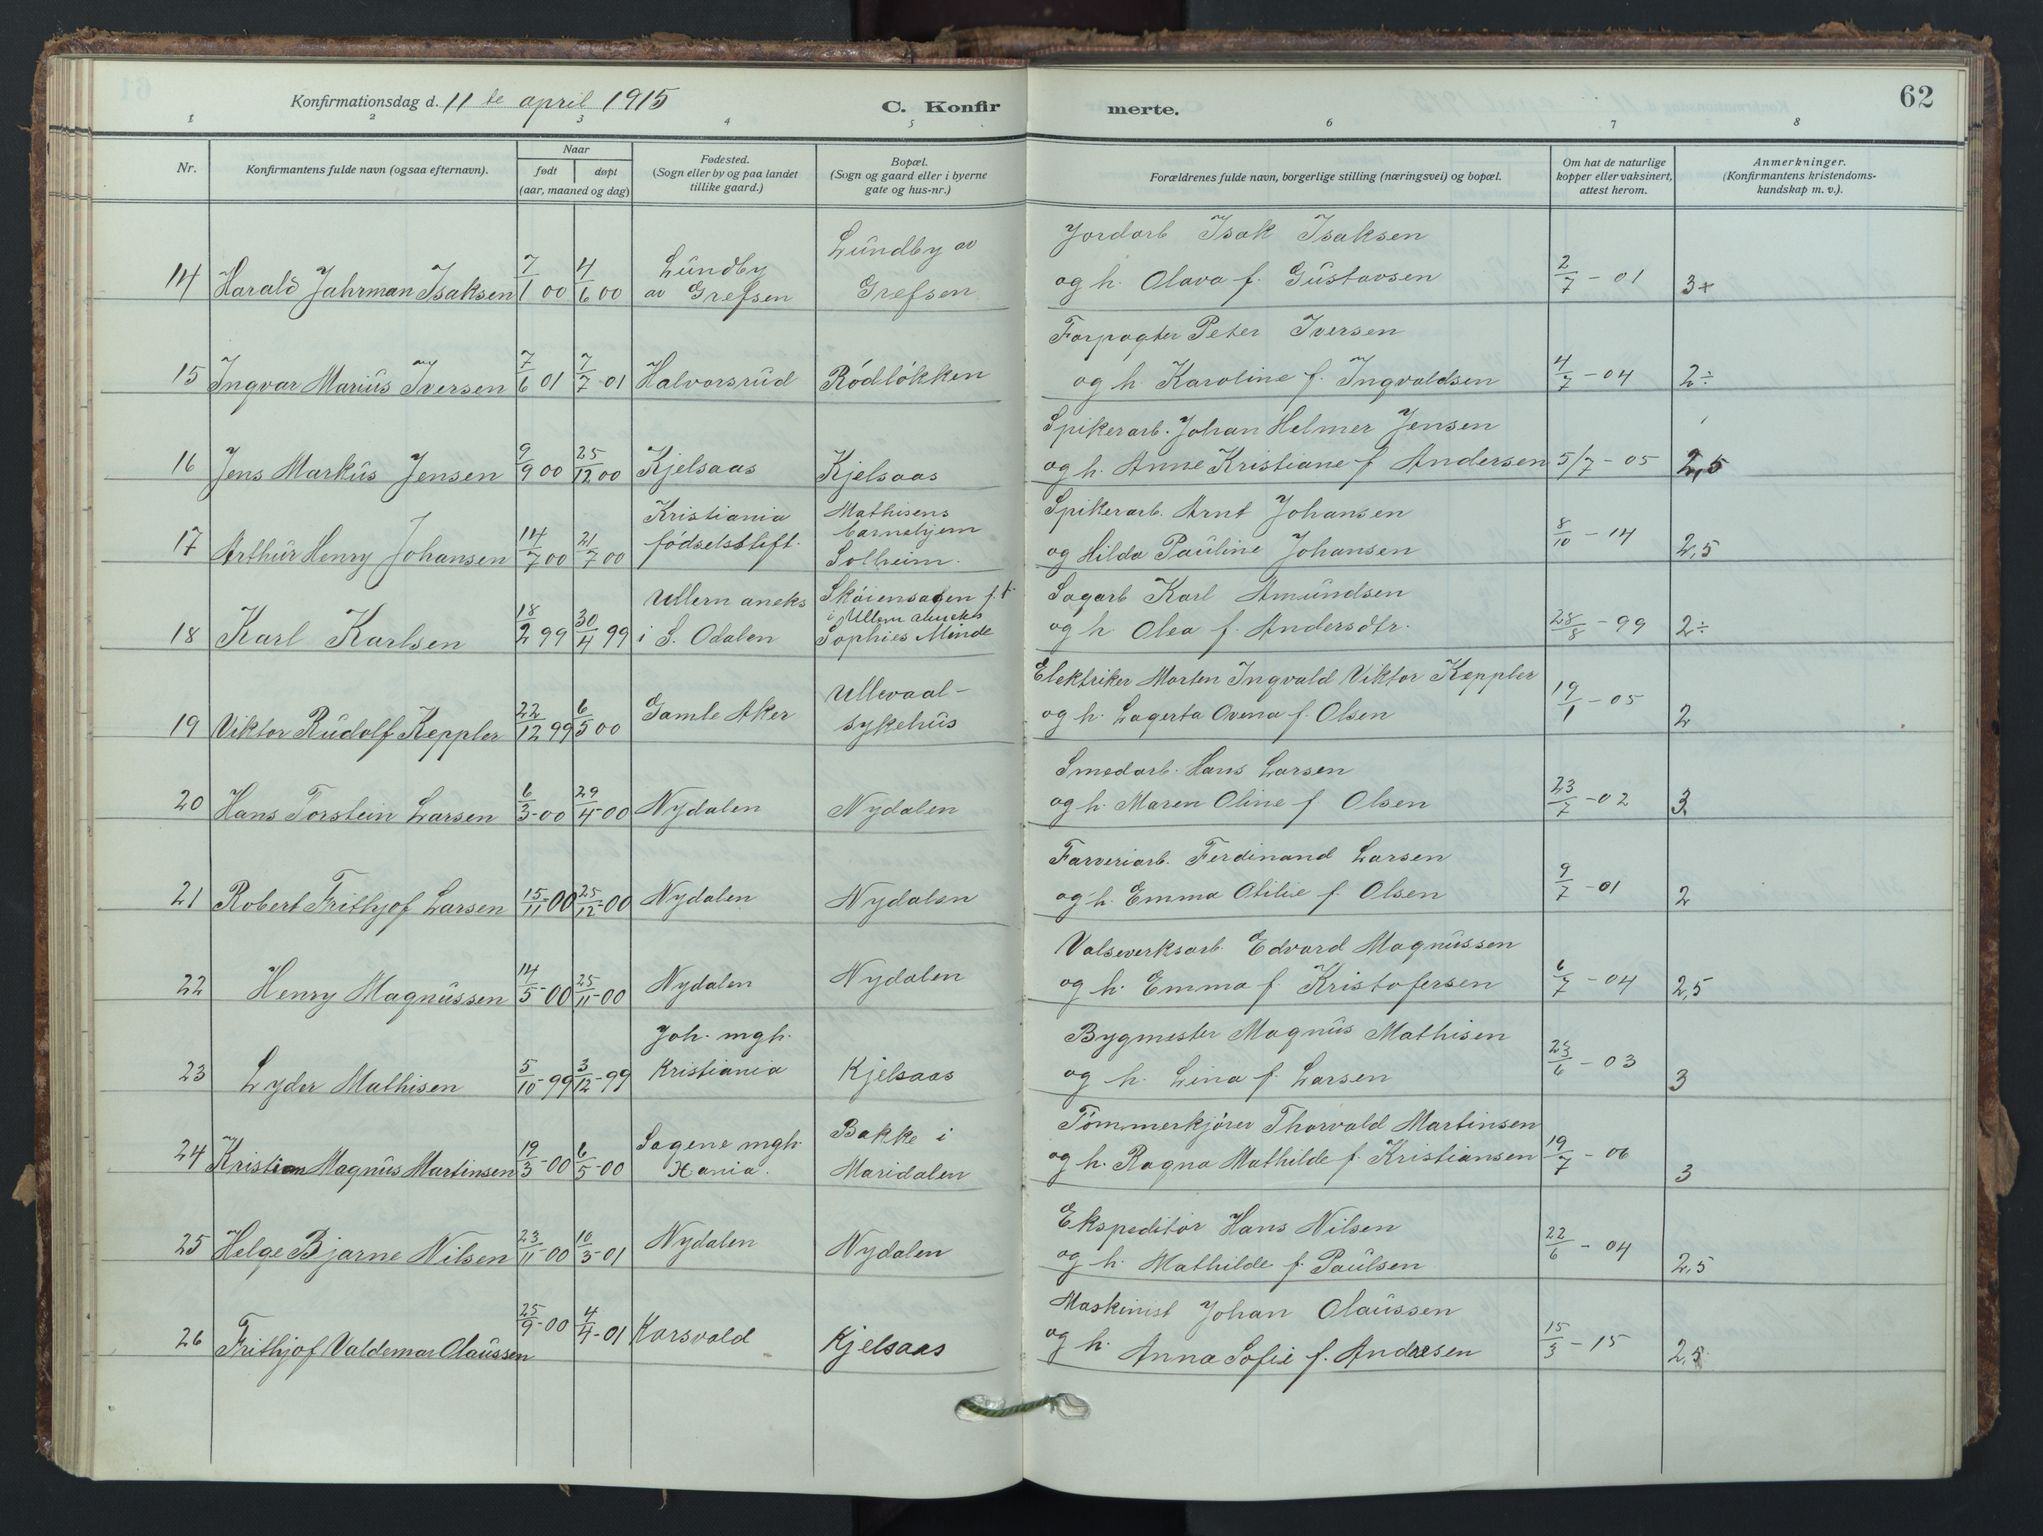 Konfirmationsdag d. 11 te april 1915
C. Konfirmerte.
62
1 2 3 4 5 6 7 8
Nr.
Konfirmantens fulde navn (ogsaa efternavn).
Naar
født døpt
(aar, maaned og dag)
Fødested.
(Sogn eller by og paa landet
tillike gaard.)
Bopæl.
(Sogn og gaard eller i byerne
gate og hus-nr.)
Forældrenes fulde navn, borgerlige stilling (næringsvei) og bopæl.
Om hat de naturlige
kopper eller vaksinert,
attest herom.
Anmerkninger.
(Konfirmantens kristendoms-
kundskap m. v.).
14 Harald Jahrman Isaksen 7/1 00 4/6 00
Lundby
av Grefsen
Lundby av
Grefsen
Jordarb Isak Isaksen
og h. Olava f. Gustavsen 2/7 - 01 3+
15 Ingvar Marius Iversen 7/6 01 7/7 - 01 Halvorsrud Rödlökken
Forpagter Peter Iversen
og h. Karoline f. Ingvaldsen 4/7 - 04 2÷
16 Jens Markus Jensen 9/9 00 25/12 00 Kjelsaas Kjelsaas
Spikerarb. Johan Helmer Jensen
og h. Anne Kristiane f Andersen 5/7 - 05 2,5
17 Arthur Henry Johansen 14/7 00 21/7 00
Kristiania
födselsstift.
Mathisens
barnehjem
Solheim.
Spikerarb. Arnt Johansen
og Hilda Pauline Johansen 8/10 - 14 2,5
18 Karl Karlsen 18/2 99 30/4 99
Ullern aneks
i S. Odalen
Sköiensaden f. t.
i Ullern aneks
Sophies Minde
Sagarb Karl Amundsen
og h. Olea f. Andersdtr. 28/8 - 99 2÷
19 Viktor Rudolf Keppler 22/12 99 6/5 00 Gamle Aker
Ullevaal-
sykehus
Elektriker Morten Ingvald Viktor Keppler
og h. Lagerta Ovena f. Olsen 19/1 - 05 2
20 Hans Torstein Larsen 6/3-00 29/4-00 Nydalen Nydalen
Smedarb. Hans Larsen
og h. Maren Oline f Olsen 23/7 - 02 3
21 Robert Frithjof Larsen 15/11-00 25/12-00 Nydalen Nydalen
Farveriarb. Ferdinand Larsen
og h. Emma Otilie f. Olsen 9/7 - 01 2
22 Henry Magnussen 14/5-00 25/11-00 Nydalen Nydalen
Valseverksarb. Edvard Magnussen
og h. Emma f. Kristofersen 6/7 - 04 2,5
23 Lyder Mathisen 5/10-99 3/12-99
Joh. mgh.
Kristiania
Kjelsaas
Bygmester Magnus Mathisen
og h. Lina f. Larsen 23/6 - 03 3
24 Kristian Magnus Martinsen 19/3-00 6/5-00
Sagene mgh.
Xania.
Bakke i
Maridalen
Tömmerkjörer Thorvald Martinsen
og h. Ragna Mathilde f. Kristiansen 19/7 - 06 3
25 Helge Bjarne Nilsen 23/11-00 10/3-01 Nydalen Nydalen
Ekspeditör Hans Nilsen
og h. Mathilde f. Paulsen 22/6 - 04 2,5
26 Frithjof Valdemar Olaussen 25/9-00 4/4-01 Korsvold Kjelsaas
Maskinist Johan Olaussen
og h. Anna Sofie f. Andresen 15/3 - 15 2,5